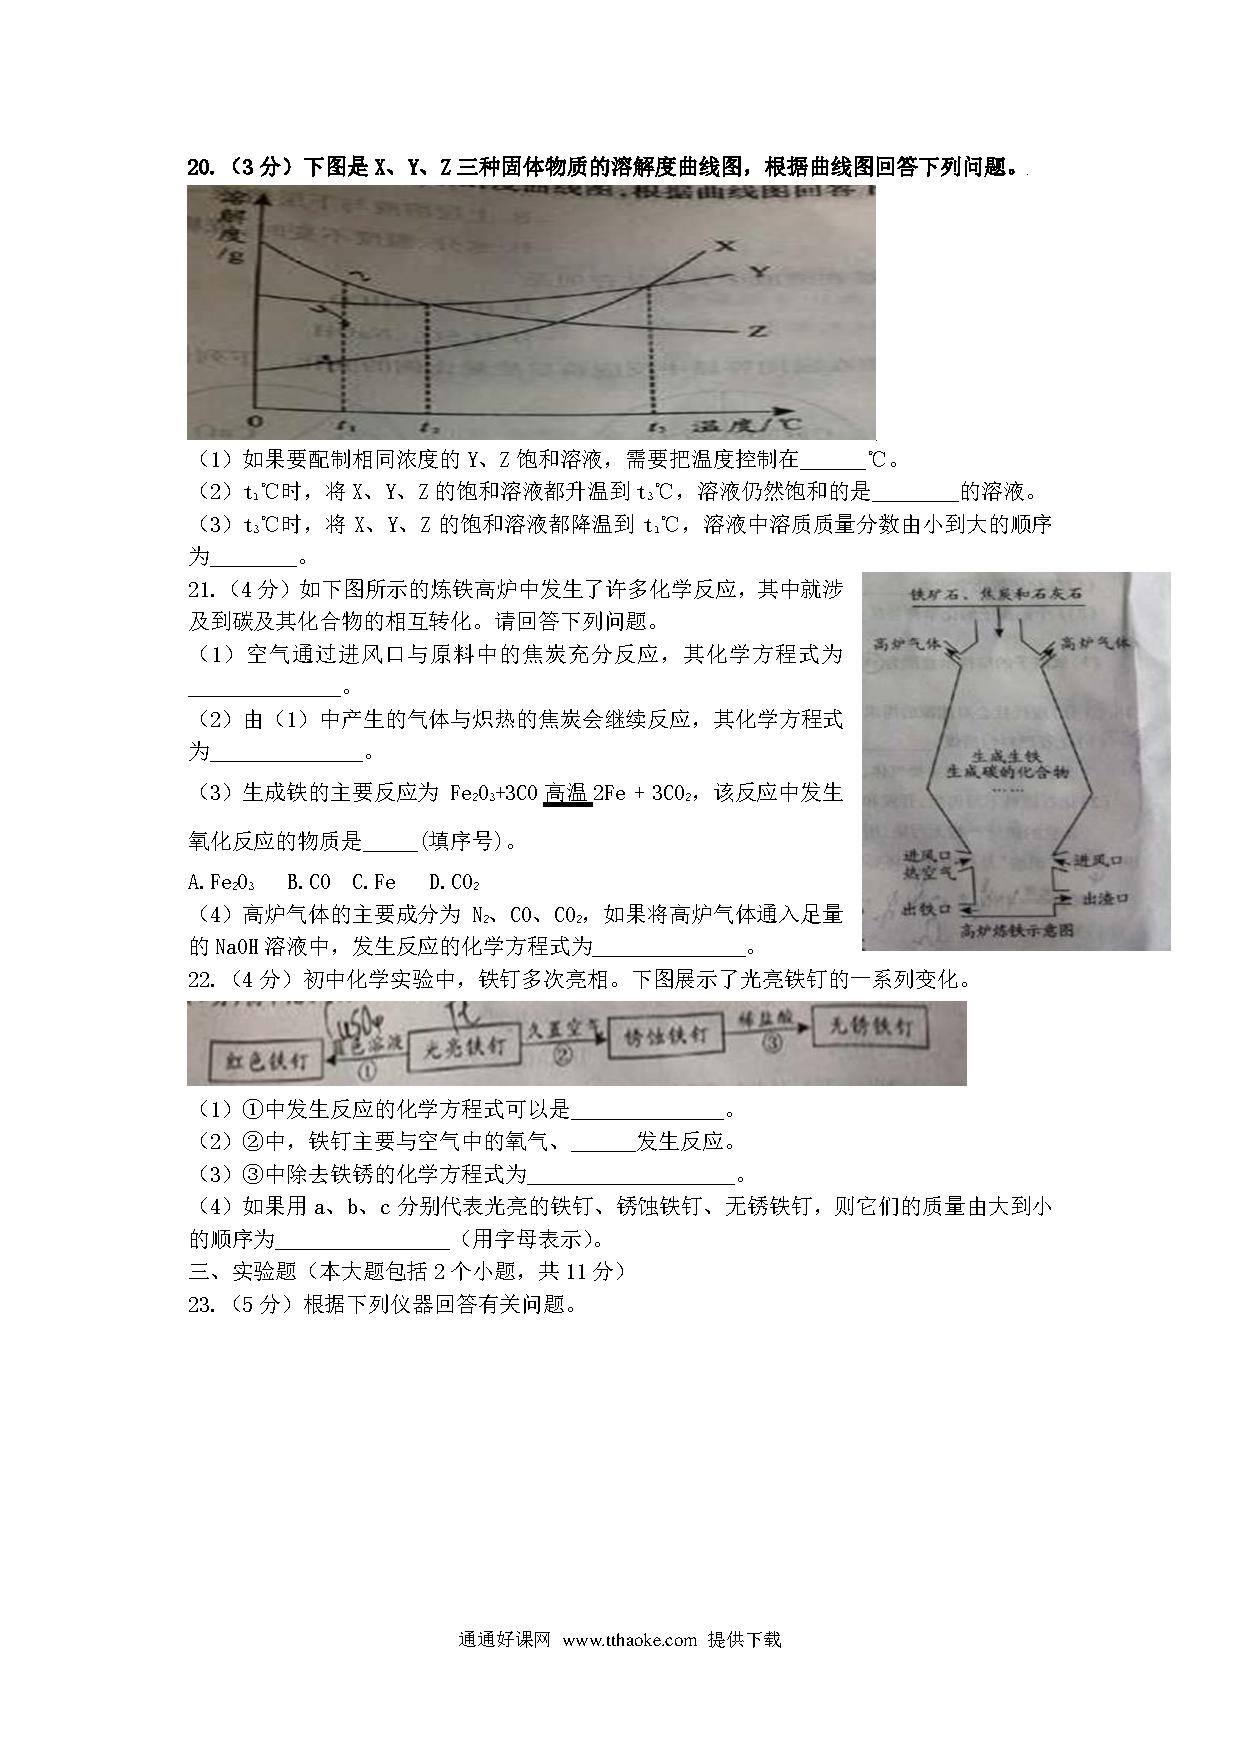 20.（3分）下图是X、Y、Z三种固体物质的溶解度曲线图，根据曲线图回答下列问题。
溶解度/g
X
Y
Z
0 t₁ t₂ t₃ 温度/℃
（1）如果要配制相同浓度的Y、Z饱和溶液，需要把温度控制在______℃。
（2）t₁℃时，将X、Y、Z的饱和溶液都升温到t₃℃，溶液仍然饱和的是________的溶液。
（3）t₃℃时，将X、Y、Z的饱和溶液都降温到t₁℃，溶液中溶质质量分数由小到大的顺序
为________。
21.（4分）如下图所示的炼铁高炉中发生了许多化学反应，其中就涉
及到碳及其化合物的相互转化。请回答下列问题。
（1）空气通过进风口与原料中的焦炭充分反应，其化学方程式为
______________。
（2）由（1）中产生的气体与炽热的焦炭会继续反应，其化学方程式
为______________。
（3）生成铁的主要反应为 Fe₂O₃+3CO 高温 2Fe + 3CO₂，该反应中发生
氧化反应的物质是_____(填序号)。
A.Fe₂O₃ B.CO C.Fe D.CO₂
（4）高炉气体的主要成分为 N₂、CO、CO₂，如果将高炉气体通入足量
的NaOH溶液中，发生反应的化学方程式为______________。
铁矿石、焦炭和石灰石
高炉气体 高炉气体
生成生铁
生成碳的化合物
……
进风口 进风口
热空气
出铁口 出渣口
高炉炼铁示意图
22.（4分）初中化学实验中，铁钉多次亮相。下图展示了光亮铁钉的一系列变化。
CuSO₄
红色铁钉 蓝色溶液 ① 光亮铁钉 久置空气 ② 锈蚀铁钉 稀盐酸 ③ 无锈铁钉
（1）①中发生反应的化学方程式可以是______________。
（2）②中，铁钉主要与空气中的氧气、______发生反应。
（3）③中除去铁锈的化学方程式为___________________。
（4）如果用a、b、c分别代表光亮的铁钉、锈蚀铁钉、无锈铁钉，则它们的质量由大到小
的顺序为________________（用字母表示）。
三、实验题（本大题包括2个小题，共11分）
23.（5分）根据下列仪器回答有关问题。
通通好课网 www.tthaoke.com 提供下载